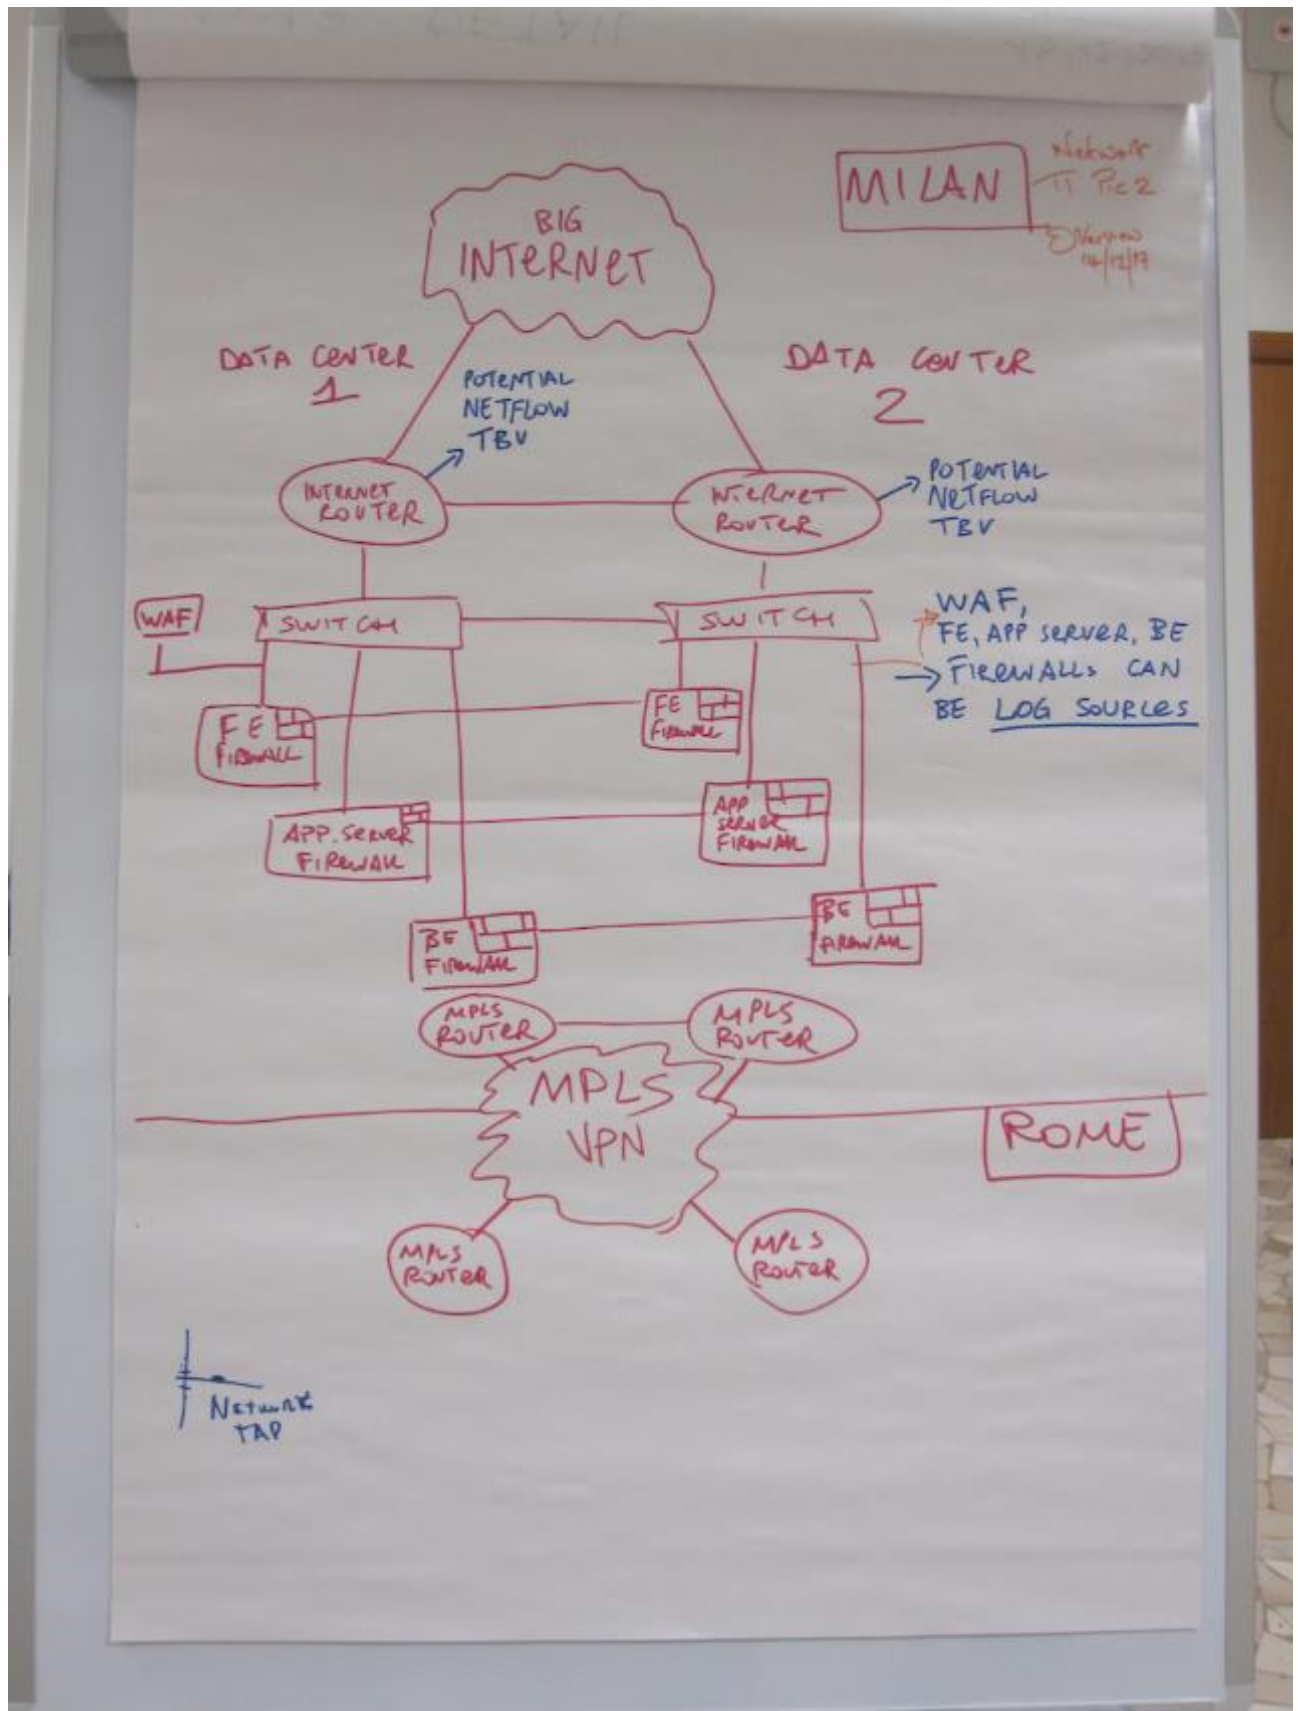 BIG
INTERNET
MILAN
Network
Pic 2
Overview
14/12/17
DATA CENTER
1
DATA CENTER
2
POTENTIAL
NETFLOW
TBV
POTENTIAL
NETFLOW
TBV
INTERNET
ROUTER
INTERNET
ROUTER
WAF
SWITCH
SWITCH
WAF,
FE, APP SERVER, BE
FIREWALLS CAN
BE LOG SOURCES
FE
FIREWALL
FE
FIREWALL
APP. SERVER
FIREWALL
APP
SERVER
FIREWALL
BE
FIREWALL
BE
FIREWALL
MPLS
ROUTER
MPLS
ROUTER
MPLS
VPN
ROME
MPLS
ROUTER
MPLS
ROUTER
NETWORK
TAP